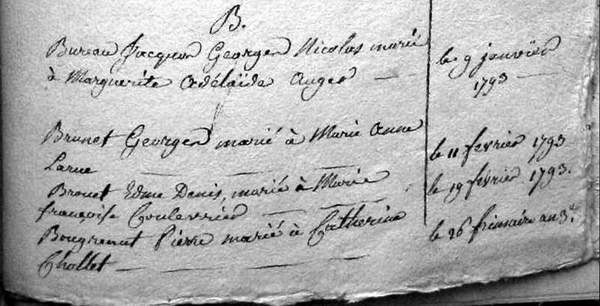 B.
Bureau Jacques Georges Nicolas marié
à Marguerite adélaïde auger
le 9 janvier
1793
Brunet Georges marié à Marie anne
Larue
le 11 fevrier 1793
Brouet Edme Denis, marié à Marie
françoise
le 19 fevrier 1793.
Bougrenet Pierre marié à Catherine
Chollet
le 26 frimaire an 3.e